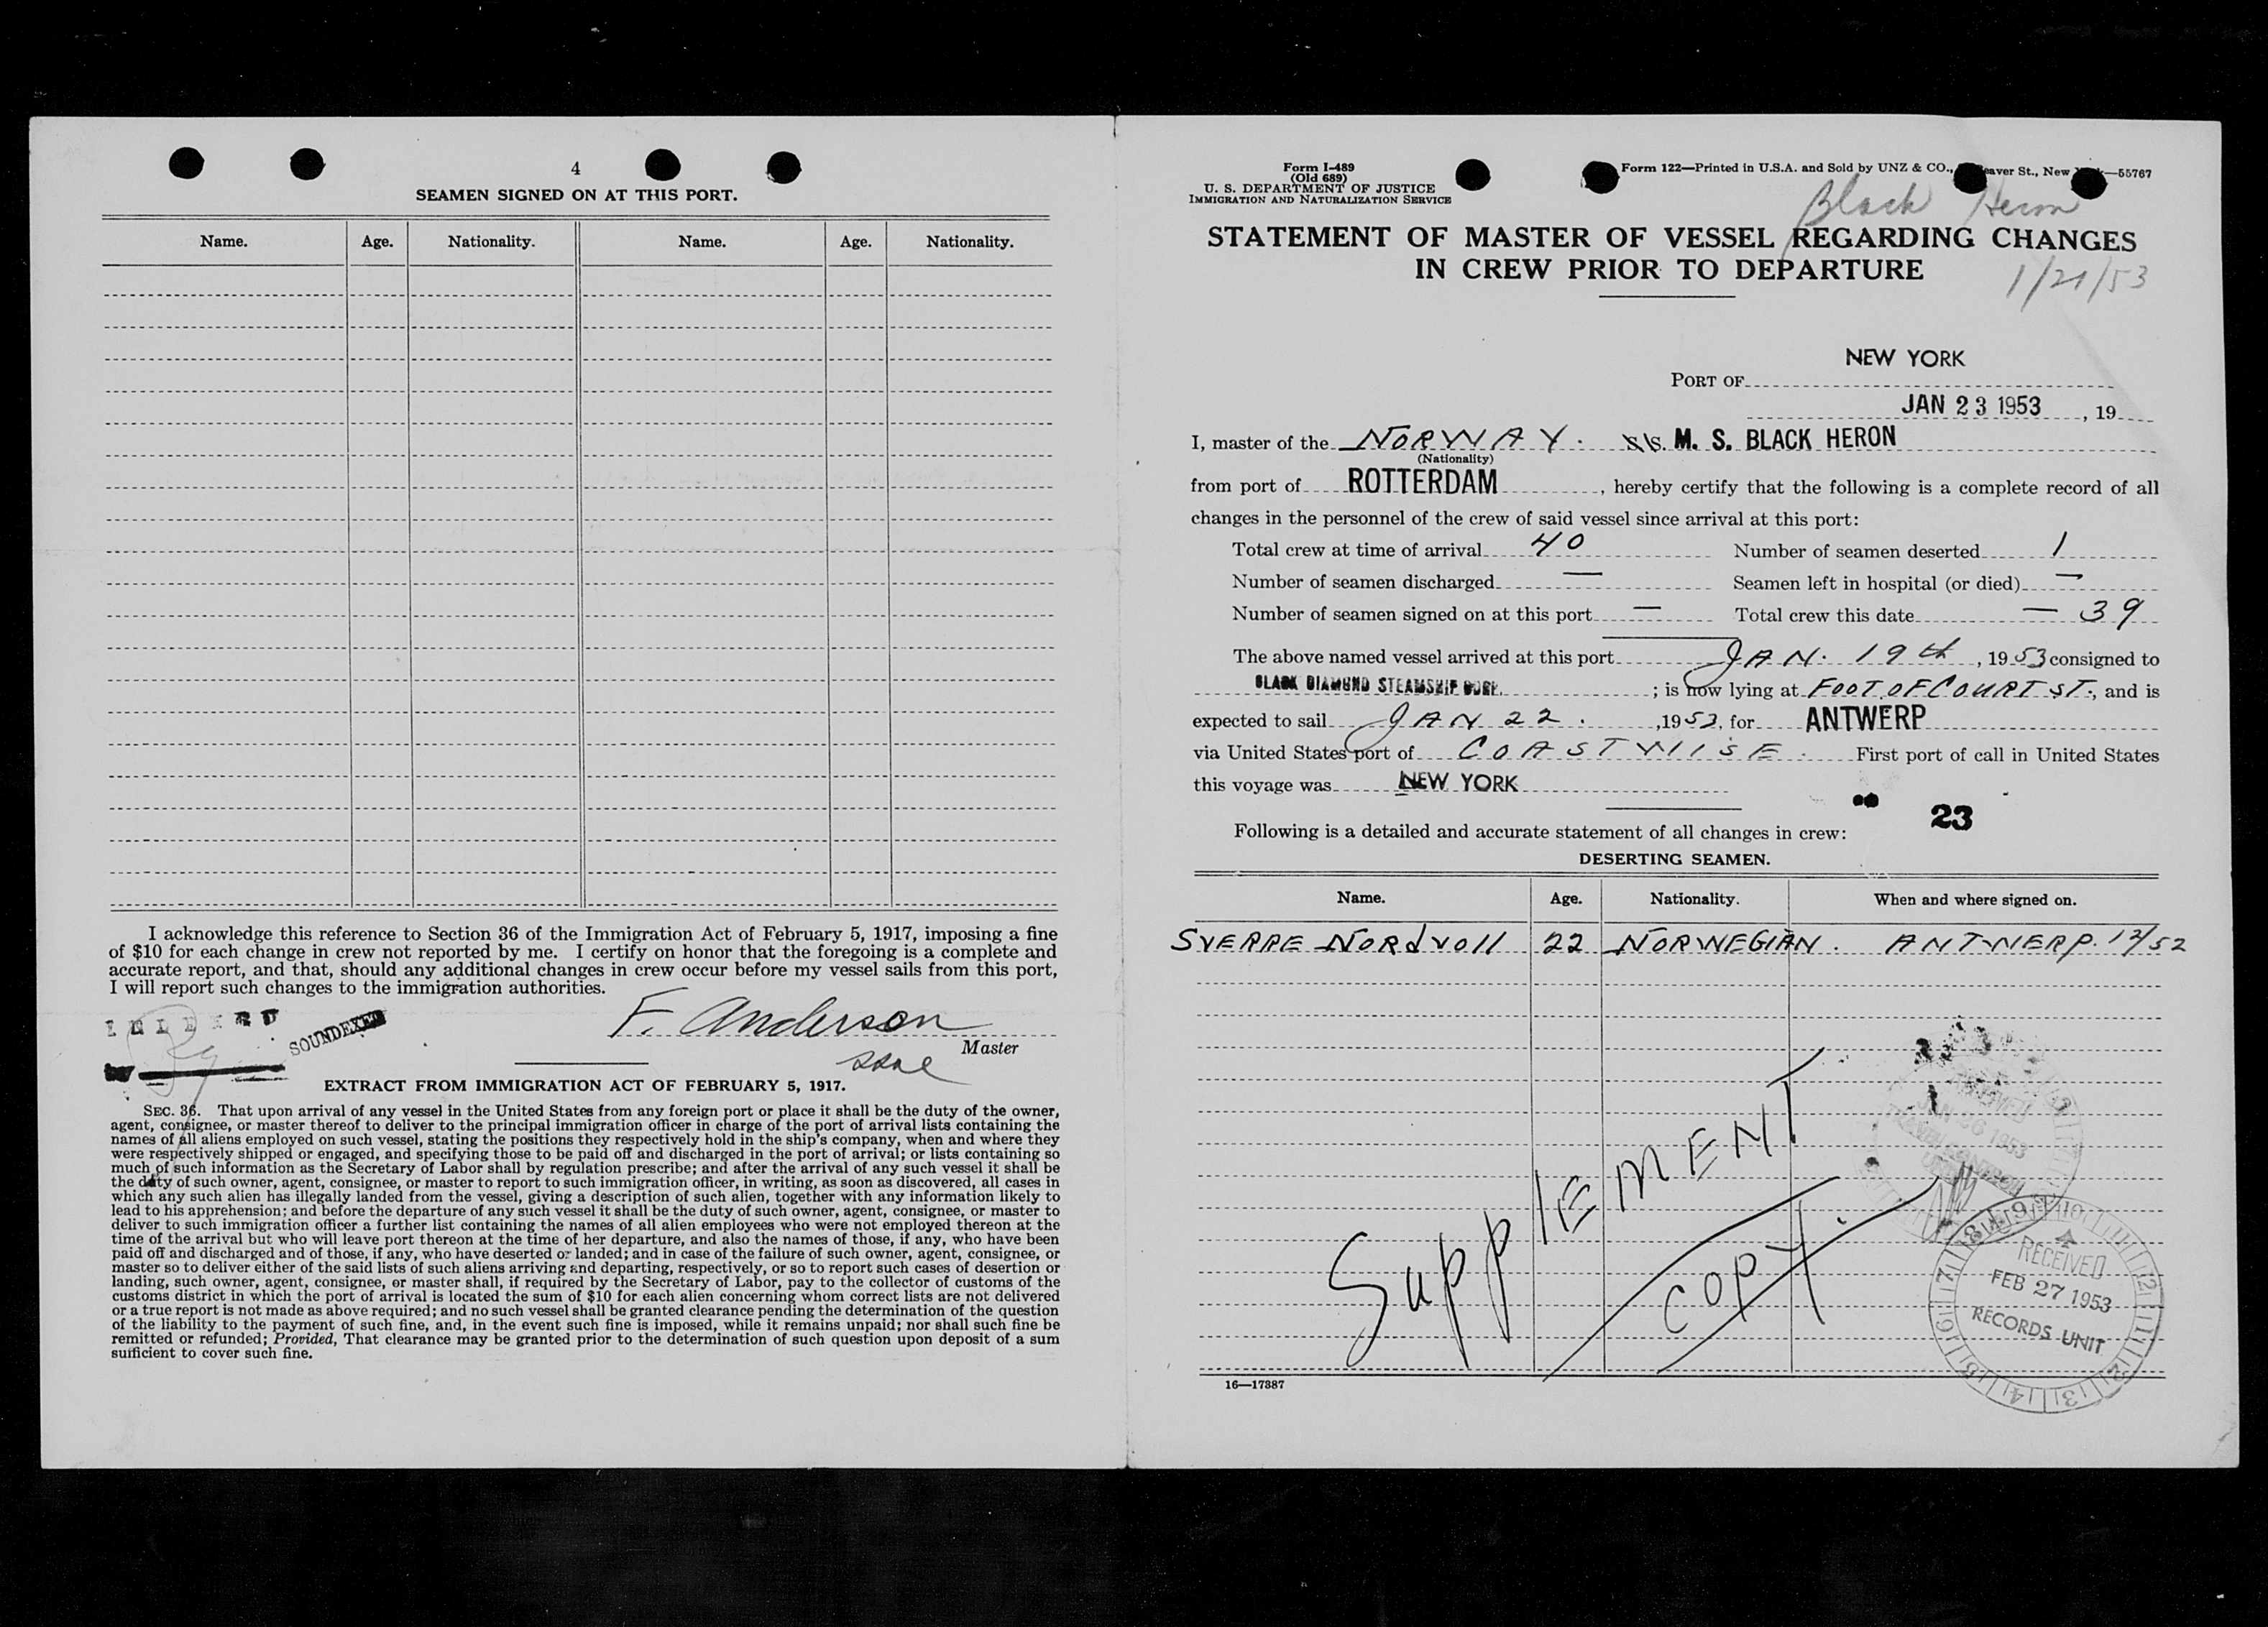 4
SEAMEN SIGNED ON AT THIS PORT.
Name. Age. Nationality. Name. Age. Nationality.
I acknowledge this reference to Section 36 of the Immigration Act of February 5, 1917, imposing a fine
of $10 for each change in crew not reported by me. I certify on honor that the foregoing is a complete and
accurate report, and that, should any additional changes in crew occur before my vessel sails from this port,
I will report such changes to the immigration authorities.
SOUNDEXED
F. Anderson
Master
EXTRACT FROM IMMIGRATION ACT OF FEBRUARY 5, 1917.
SEC. 36. That upon arrival of any vessel in the United States from any foreign port or place it shall be the duty of the owner,
agent, consignee, or master thereof to deliver to the principal immigration officer in charge of the port of arrival lists containing the
names of all aliens employed on such vessel, stating the positions they respectively hold in the ship's company, when and where they
were respectively shipped or engaged, and specifying those to be paid off and discharged in the port of arrival; or lists containing so
much of such information as the Secretary of Labor shall by regulation prescribe; and after the arrival of any such vessel it shall be
the duty of such owner, agent, consignee, or master to report to such immigration officer, in writing, as soon as discovered, all cases in
which any such alien has illegally landed from the vessel, giving a description of such alien, together with any information likely to
lead to his apprehension; and before the departure of any such vessel it shall be the duty of such owner, agent, consignee, or master to
deliver to such immigration officer a further list containing the names of all alien employees who were not employed thereon at the
time of the arrival but who will leave port thereon at the time of her departure, and also the names of those, if any, who have been
paid off and discharged and of those, if any, who have deserted or landed; and in case of the failure of such owner, agent, consignee, or
master so to deliver either of the said lists of such aliens arriving and departing, respectively, or so to report such cases of desertion or
landing, such owner, agent, consignee, or master shall, if required by the Secretary of Labor, pay to the collector of customs of the
customs district in which the port of arrival is located the sum of $10 for each alien concerning whom correct lists are not delivered
or a true report is not made as above required; and no such vessel shall be granted clearance pending the determination of the question
of the liability to the payment of such fine, and, in the event such fine is imposed, while it remains unpaid; nor shall such fine be
remitted or refunded; Provided, That clearance may be granted prior to the determination of such question upon deposit of a sum
sufficient to cover such fine.
Form I-489
(Old 689)
U. S. DEPARTMENT OF JUSTICE
IMMIGRATION AND NATURALIZATION SERVICE
Form 122—Printed in U.S.A. and Sold by UNZ & CO., St., New —55767
Black Heron
STATEMENT OF MASTER OF VESSEL REGARDING CHANGES
IN CREW PRIOR TO DEPARTURE
1/21/53
NEW YORK
PORT OF
JAN 23 1953, 19
I, master of the NORWAY. S/S. M. S. BLACK HERON
(Nationality)
from port of ROTTERDAM, hereby certify that the following is a complete record of all
changes in the personnel of the crew of said vessel since arrival at this port:
Total crew at time of arrival 40 Number of seamen deserted 1
Number of seamen discharged — Seamen left in hospital (or died) —
Number of seamen signed on at this port — Total crew this date — 39
The above named vessel arrived at this port JAN. 19th, 1953 consigned to
BLACK DIAMOND STEAMSHIP CORP. ; is now lying at FOOT OF COURT ST., and is
expected to sail JAN 22. ,1953, for ANTWERP
via United States port of COASTWISE. First port of call in United States
this voyage was NEW YORK
23
Following is a detailed and accurate statement of all changes in crew:
DESERTING SEAMEN.
Name. Age. Nationality. When and where signed on.
SVERRE NORdvoll 22 NORWEGIAN. ANTWERP. 12/52
SuppLEMENT
COPY.
JAN 26 1953
RECEIVED
FEB 27 1953
RECORDS UNIT
16—17887